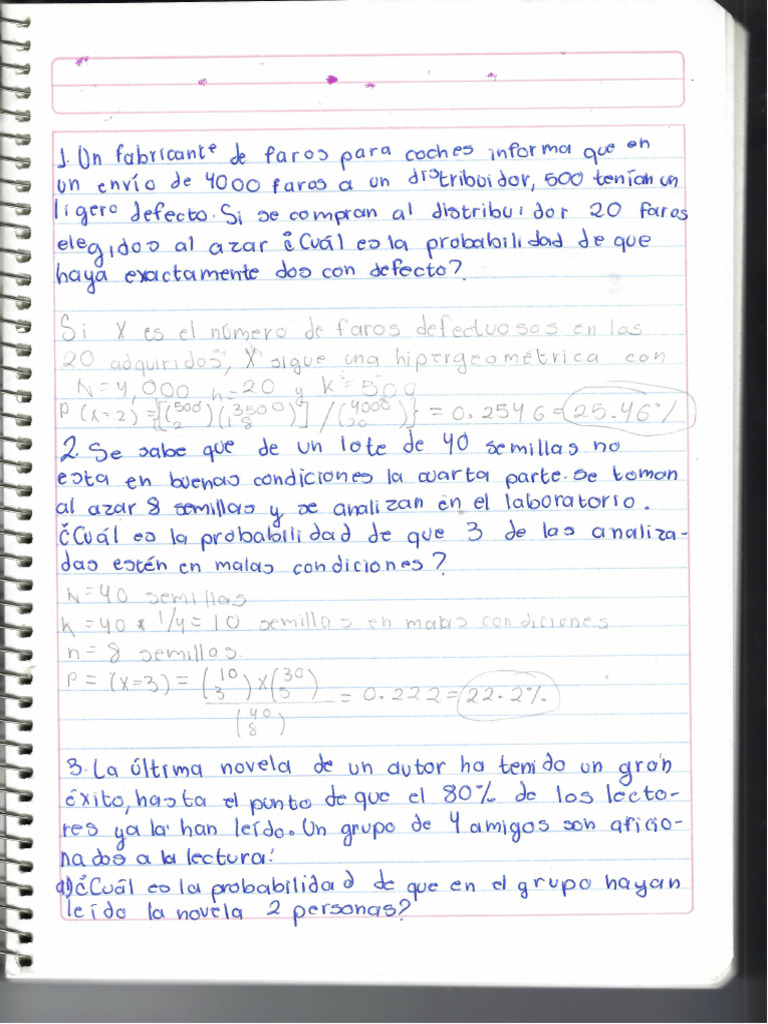 1. Un fabricante de faros para coches informa que en
un envío de 4000 faros a un distribuidor, 500 tenían un
ligero defecto. Si se compran al distribuidor 20 faros
elegidos al azar ¿Cuál es la probabilidad de que
haya exactamente dos con defecto?
Si X es el número de faros defectuosos en las
20 adquiridos, X sigue una hipergeométrica con
N=4,000 n=20 y k=500
P(x=2)={[(500 2)(3500 18)]/(4000 20)}=0.2546=25.46%
2. Se sabe que de un lote de 40 semillas no
esta en buenas condiciones la cuarta parte. se toman
al azar 8 semillas y se analizan en el laboratorio.
¿Cuál es la probabilidad de que 3 de las analiza-
das estén en malas condiciones?
N=40 semillas
k=40 * 1/4=10 semillas en malas condiciones
n=8 semillas.
P=(x=3)=(10 3)x(30 5)
(40 8)
=0.222=22.2%
3. La última novela de un autor ha tenido un gran
éxito, hasta el punto de que el 80% de los lecto-
res ya la han leído. Un grupo de 4 amigos son aficio-
nados a la lectura:
a) ¿Cuál es la probabilidad de que en el grupo hayan
leído la novela 2 personas?